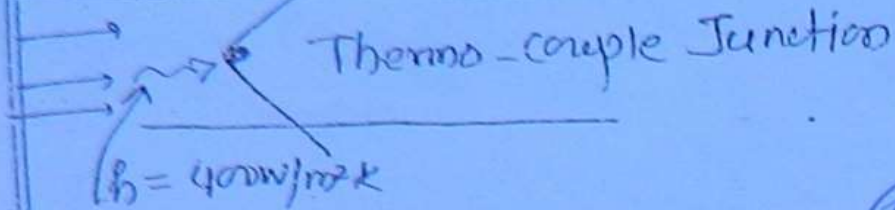 Thermo-couple Junction
h = 400W/m²K